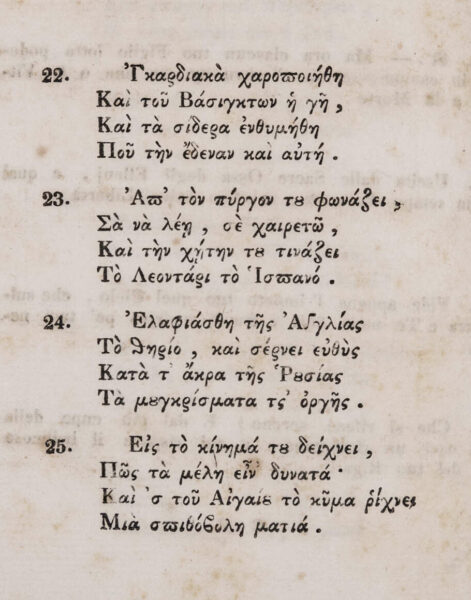 22. Ἐγκαρδιακὰ χαροποιήθη
Καὶ τοῦ Βάσιγκτων ἡ γῆ ,
Καὶ τὰ σίδερα ἐνθυμήθη
Ποῦ τὴν ἔδεναν καὶ αὐτή .
23. Ἀπ' τὸν πύργον του φωνάζει ,
Σὰ νὰ λέῃ , σὲ χαιρετῶ ,
Καὶ τὴν χήτην του τινάζει
Τὸ Λεοντάρι τὸ Ἱσπανό .
24. Ἐλαφιάσθη τῆς Ἀγγλίας
Τὸ θηρίο , καὶ σέρνει εὐθὺς
Κατὰ τ' ἄκρα τῆς Ῥουσίας
Τὰ μουγκρίσματα τς' ὀργῆς .
25. Εἰς τὸ κίνημά του δείχνει ,
Πῶς τὰ μέλη εἶν' δυνατά ·
Καὶ 'ς τοῦ Αἰγαίου τὸ κῦμα ῥίχνει
Μιὰ σπιθόβολη ματιά .